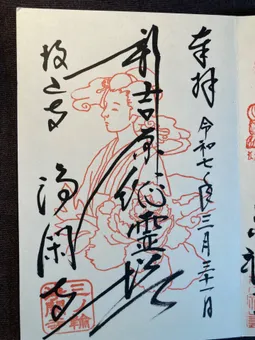 奉拝
令和七年三月三十一日
新吉原総霊塔
投込寺
浄閑寺